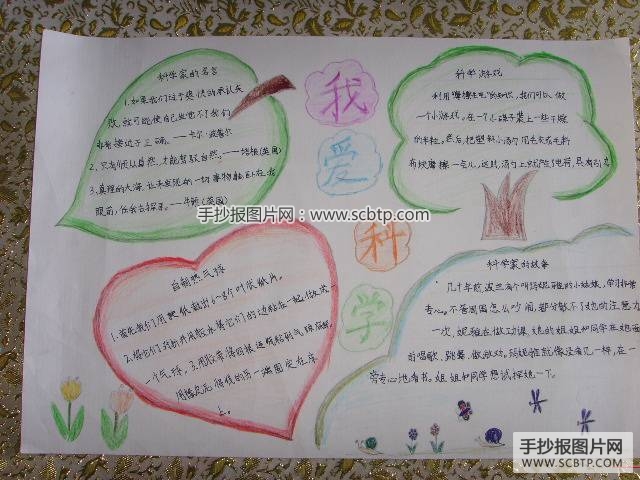 科学家的名言
1.如果我们过于爽快的承认失
败,就可能使自己发觉不了我们
非常接近于正确。——卡尔·波普尔
2.只有顺从自然,才能驾驭自然。——培根(英国)
3.真理的大海,让未发现的一切事物躺卧在我
眼前,任我去探寻。——牛顿(英国)
我
爱
科
学
科学游戏
利用"摩擦生电"的知识,我们可以做
一个小游戏。在一个小碟子装上一些干燥
的米粒。然后,把塑料小汤勺用毛衣或毛料
布块摩擦一会儿,这时,汤勺上就带了电荷,具有引力
手抄报图片网:www.scbtp.com
自制热气球
1.首先我们用把纸裁出6-8个叶状纸片。
一个气球。3.用胶带
上。
科学家的故事
几十年前,波兰有个叫玛妮雅的小姑娘,学习非常
专心。不管周围怎么吵闹,都分散不了她的注意力
一次,妮雅在做功课,她的姐姐和同学在她面
前唱歌、跳舞、做游戏。玛妮雅就像没看见一样,在一
旁专心地看书。姐姐和同学想试探她一下。
手抄报图片网
WWW.SCBTP.COM